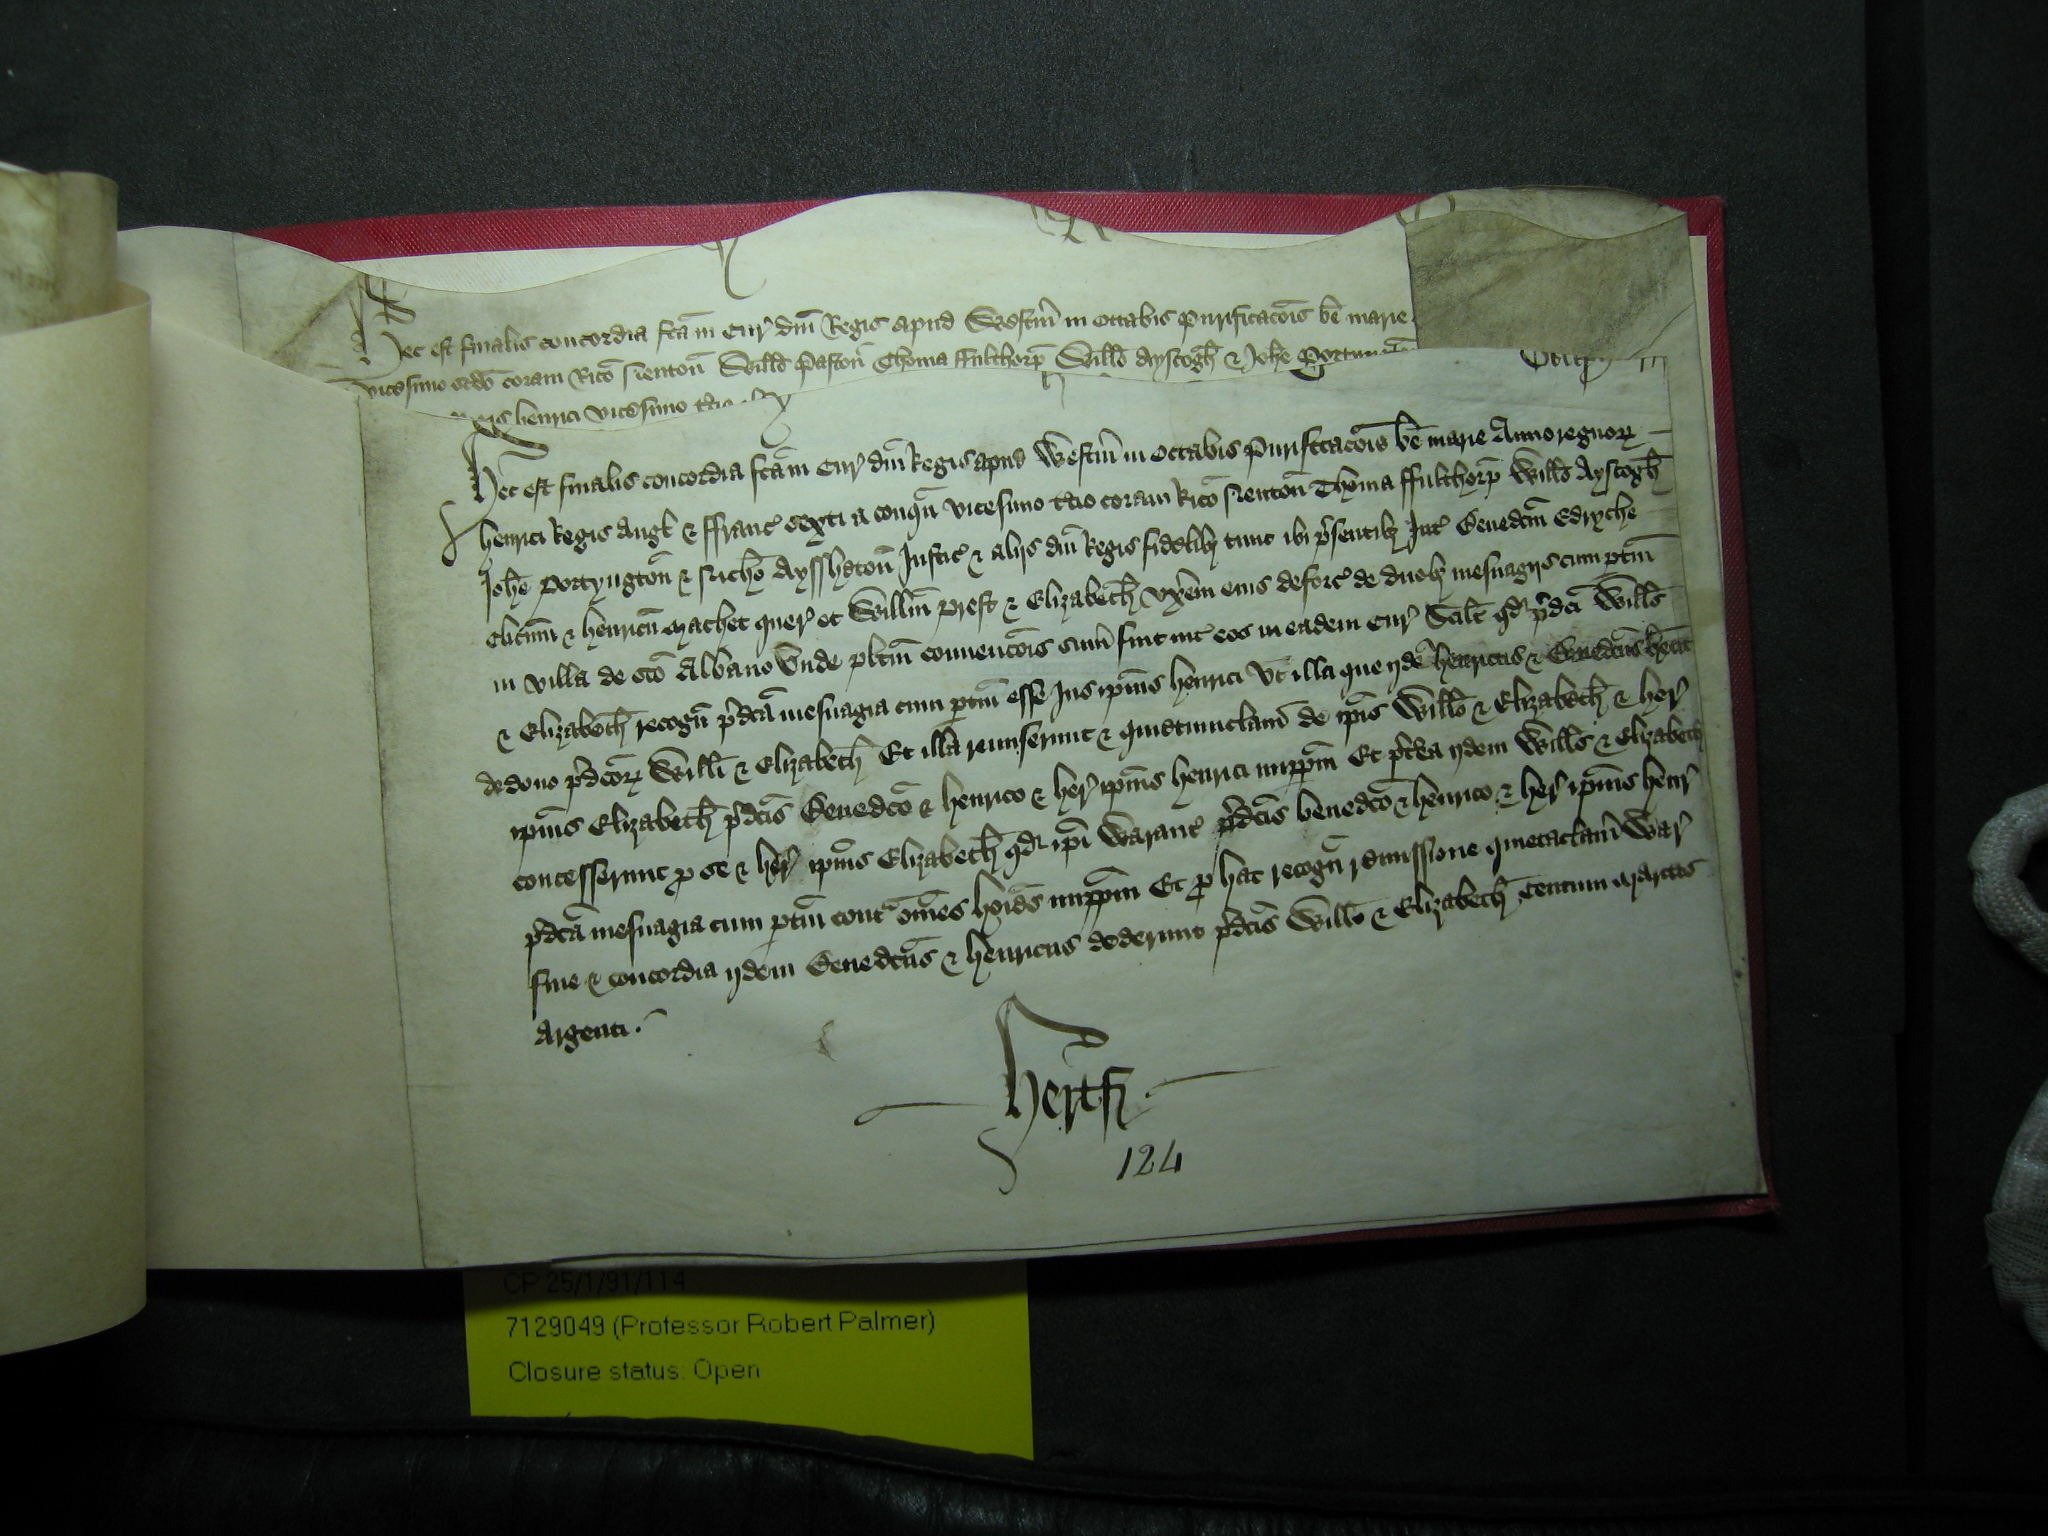 Hec est finalis concordia fca in Cur dni Regis apud Westm in Octabis Purificacois be marie
vicesimo scdo coram Rico Neuton Willo Paston Thoma ffulthorp Willo Ayscogh & Johe Portyngton
henrici vicesimo tcio
Hec est finalis concordia fca in Cur dni Regis apud Westm in Octabis Purificacois be marie Anno regnor
henrici Regis Angl & ffranc sexti a conqu vicesimo tcio coram Rico Neuton Thoma ffulthorp Willo Ayscogh
Johe Portyngton & Nicho Ayssheton Justic & alijs dni Regis fidelib tunc ibi psentib Int Benedcm Edryche
clicum & henricu Machet quer et Willm Prest & Elizabeth vxem eius deforc de duob mesuagijs cum ptin
in villa de sco Albano Unde plitm convencois sum fuit int eos in eadem Cur Scilt qd pdci Wills
& Elizabeth recogn pdca mesuagia cum ptin esse Jus ipius henrici Vt illa que ijdem henricus & Benedcus hent
de dono pdcor Willi & Elizabeth Et illa remiserunt & quietumclam de ipis Willo & Elizabeth & her
ipius Elizabeth pdcis Benedco & henrico & her ipius henrici imppm Et ptea ijdem Wills & Elizabeth
concesserunt p se & her ipius Elizabeth qd ipi Warant pdcis benedco & henrico & her ipius henr
pdca mesuagia cum ptin cont omes hoies imppm Et p hac recogn remissione quietaclam War
fine & concordia ijdem Benedcus & henricus dederunt pdcis Willo & Elizabeth Centum marcas
Argenti
hertf
124
CP 25/1/91/114
7129049 (Professor Robert Palmer)
Closure status: Open